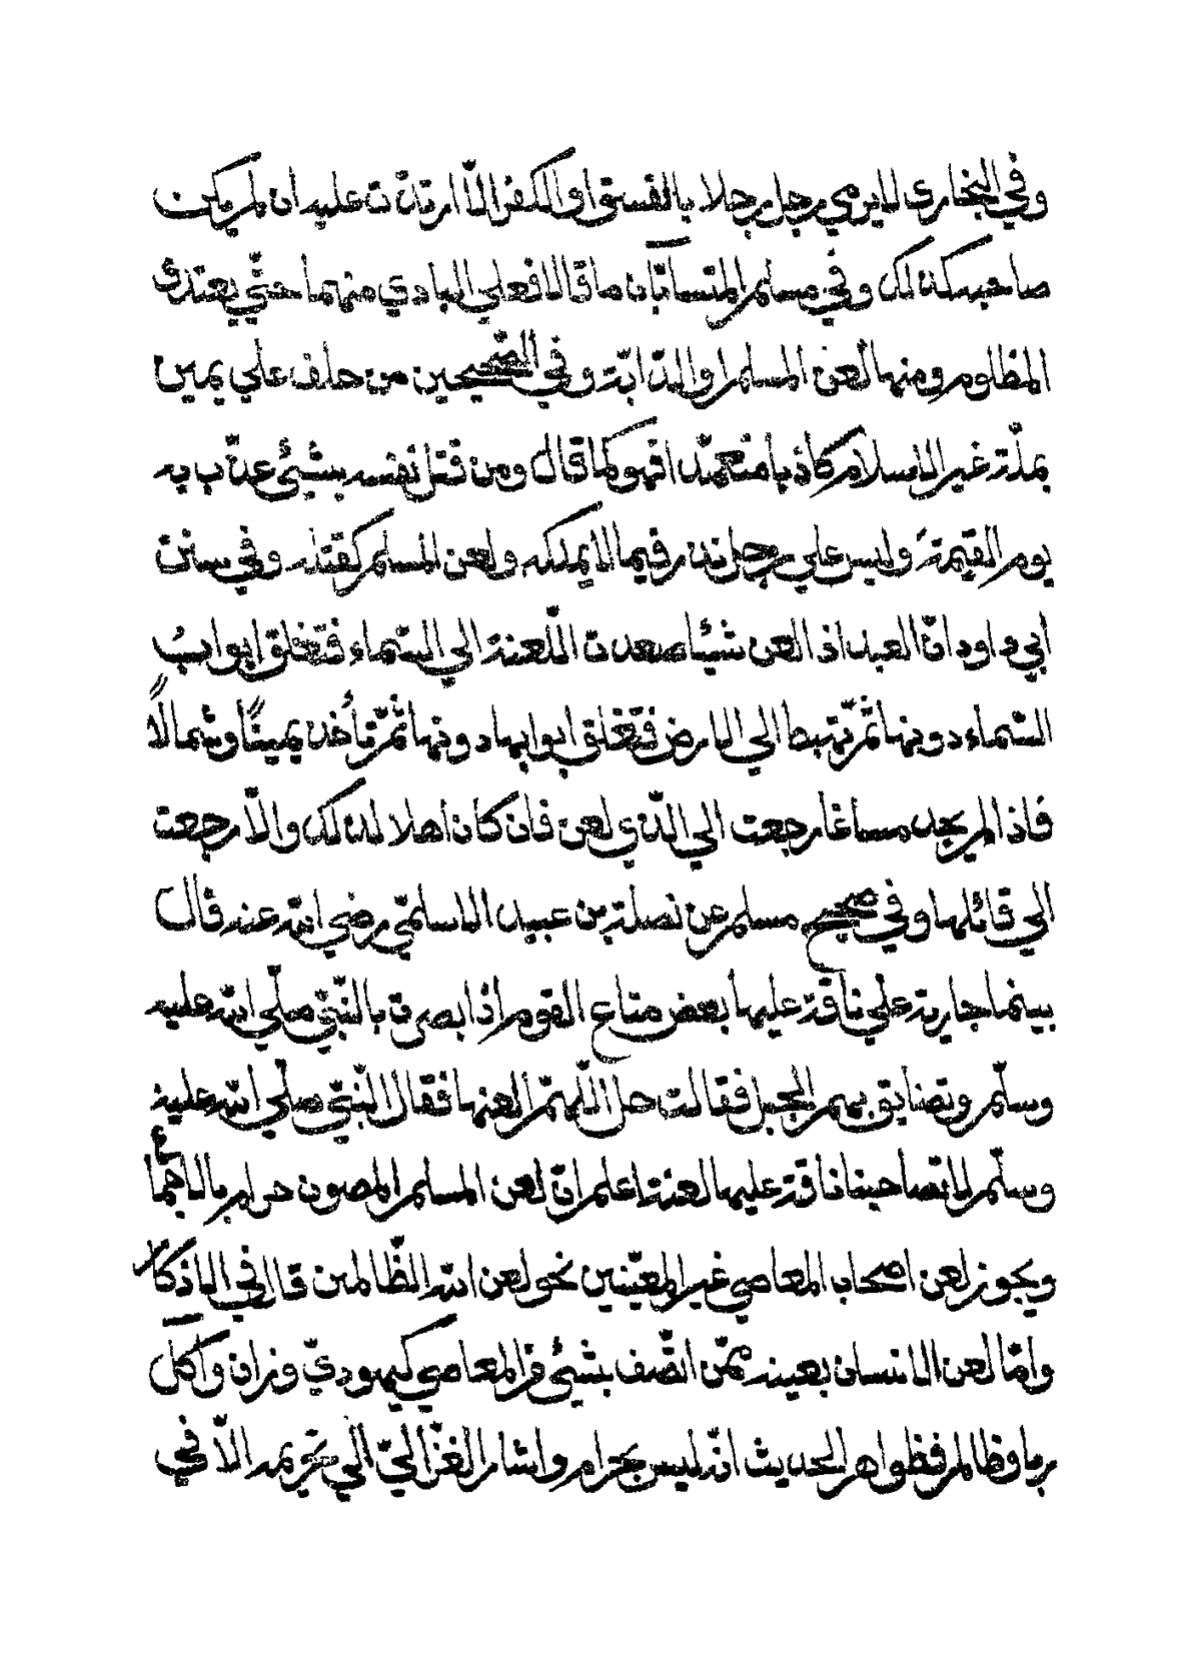 وفي البخاري لا يرمي رجل رجلا بالفسق او الكفر الّا ارتدّت عليه ان لم يكن
صاحبه كذلك وفي مسلم المتسابّان ما قالا فعلي البادي منهما حتّي يعتدي
المظلوم ومنها لعن المسلم او الدّابّة وفي الصّحيحين من حلف علي يمين
بملّة غير الاسلام كاذبا متعمّدا فهو كما قال ومن قتل نفسه بشيئ عذّب به
يوم القيمة وليس علي رجل نذر فيما لا يملكه ولعن المسلم كقتله وفي سنن
أبي داود انّ العبد اذا لعن شيئا صعدت اللّعنة الي السّماء فتغلق ابوابُ
السّماء دونها ثمّ تهبط الي الارض فتغلق ابوابها دونها ثمّ تأخذ يمينًا وشمالًا
فاذا لم يجد مساغا رجعت الي الّذي لعن فان كان اهلا لذلك والّا رجعت
الي قائلها وفي صحيح مسلم عن نضلة بن عبيد الاسلميّ رضي الله عنه قال
بينما جارية علي ناقة عليها بعض متاع القوم اذا بصرت بالنّبيّ صلّي الله عليه
وسلّم وتضايق بهم الجبل فقالت حل اللّهمّ العنها فقال النّبيّ صلّي الله عليه
وسلّم لا تصاحبنا ناقة عليها لعنة اعلم انّ لعن المسلم المصون حرام بالاجماع
ويجوز لعن اصحاب المعاصي غير المعيّنين نحو لعن الله الظّالمين قال في الاذكار
وامّا لعن الانسان بعينه ممّن اتّصف بشيئ من المعاصي كيهوديّ وزان وآكل
ربا وظالم فظواهر الحديث انّه ليس بحرام واشار الغزّاليّ الي تحريمه الّا في